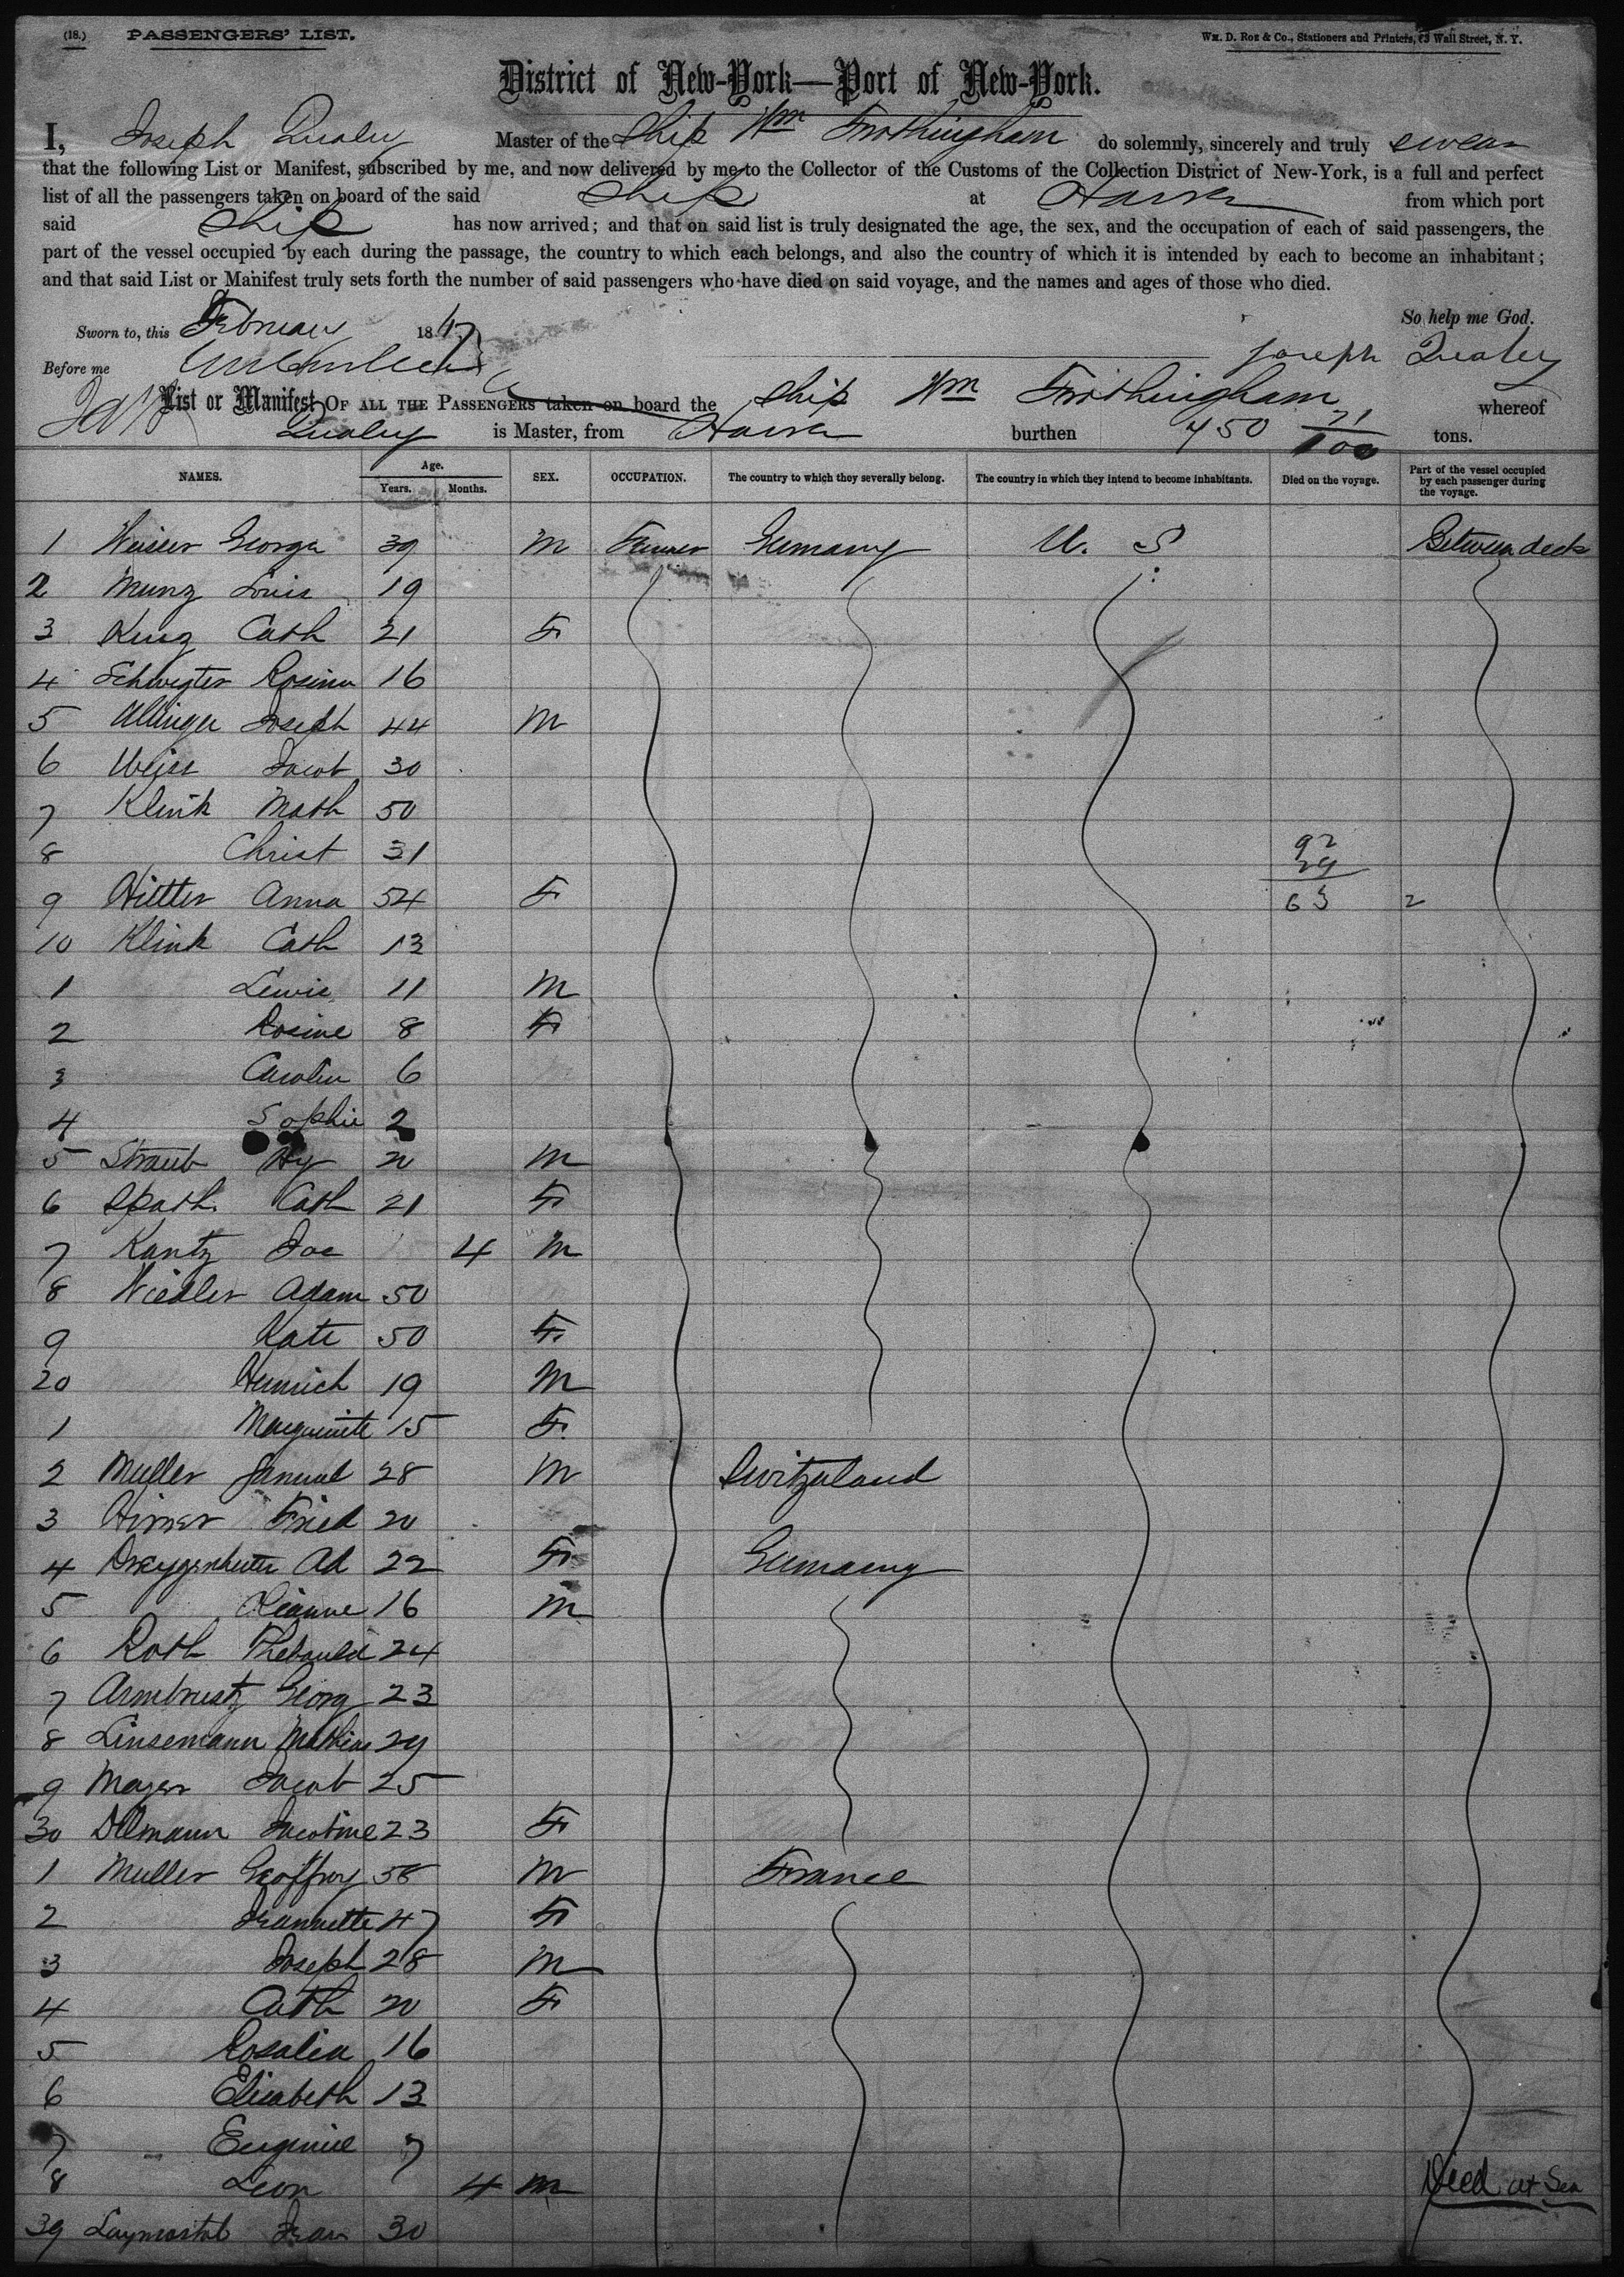 (18.) PASSENGERS' LIST. Wm. D. Roe & Co., Stationers and Printers, 73 Wall Street, N. Y.
District of New-York—Port of New-York.
I, Joseph Qualey Master of the Ship Wm Frothingham do solemnly, sincerely and truly swear
that the following List or Manifest, subscribed by me, and now delivered by me to the Collector of the Customs of the Collection District of New-York, is a full and perfect
list of all the passengers taken on board of the said Ship at Havre from which port
said Ship has now arrived; and that on said list is truly designated the age, the sex, and the occupation of each of said passengers, the
part of the vessel occupied by each during the passage, the country to which each belongs, and also the country of which it is intended by each to become an inhabitant;
and that said List or Manifest truly sets forth the number of said passengers who have died on said voyage, and the names and ages of those who died.
So help me God.
Sworn to, this February 1867
Joseph Qualey
Before me
List or Manifest OF ALL THE PASSENGERS taken on board the Ship Wm Frothingham whereof
Qualey is Master, from Havre burthen 450 71/100 tons.
NAMES. Age. Years. Months. SEX. OCCUPATION. The country to which they severally belong. The country in which they intend to become inhabitants. Died on the voyage. Part of the vessel occupied by each passenger during the voyage.
1 George 39 M Farmer Germany U. S Between deck
2 Munz Louis 19
3 Cath 21 F
4 Rosina 16
5 Joseph 44 M
6 Weiss Jacob 30
7 Klink Math 50
8 Christ 31 92
29
9 Hittler Anna 54 F 63 2
10 Klink Cath 13
1 Lewis 11 M
2 Rosine 8 F
3 Carolin 6
4 Sophie 2
5 Straub Hy 20 M
6 Spath Cath 21 F
7 Kantz Joe 4 M
8 Wiedler Adam 50
9 Kate 50 F
20 Heinrich 19 M
1 Marguerite 15 F
2 Muller Samuel 28 M Switzerland
3 Fried 20
4 Ad 22 F Germany
5 16 M
6 Roth Thebauld 24
7 Armbrustz Georg 23
8 Linsemann Mathias 29
9 Mayer Jacob 25
30 Jacobine 23 F
1 Muller Geoffroy 58 M France
2 Jeannette 47 F
3 Joseph 28 M
4 Cath 20 F
5 Rosalia 16
6 Elisabeth 13
7 Eugenie 7
8 Leon 4 M Died at Sea
39 Jean 30